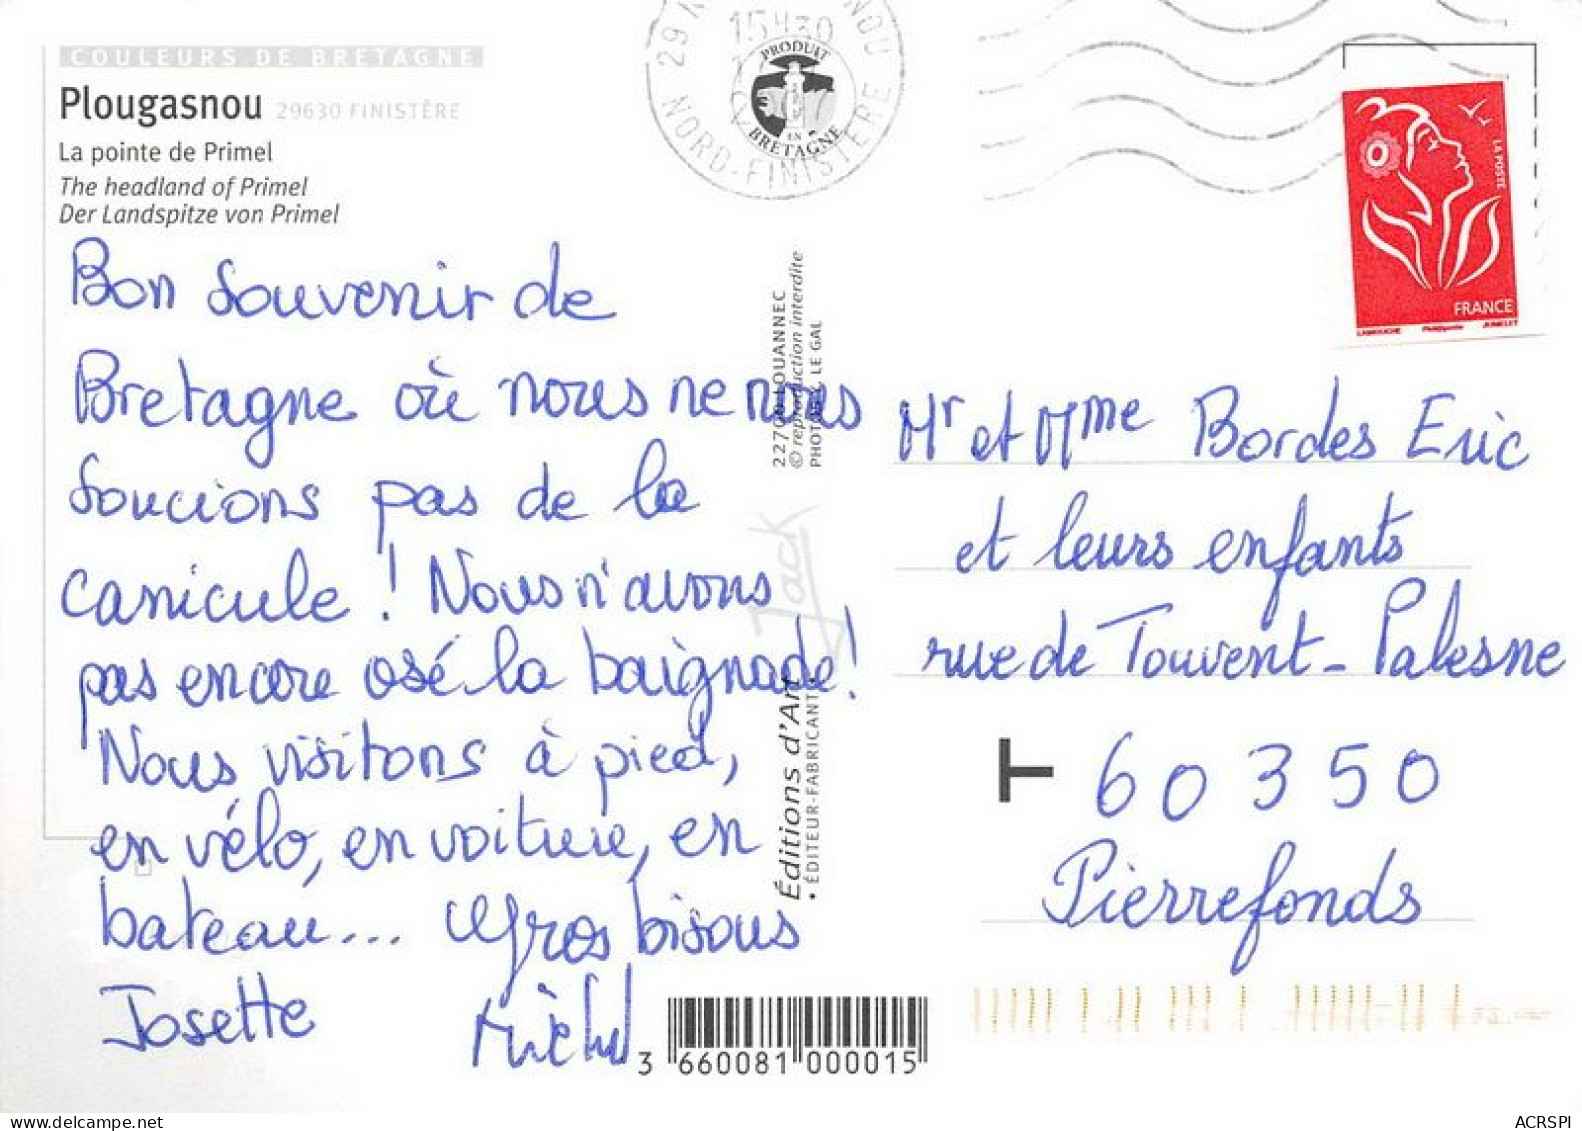 COULEURS DE BRETAGNE
Plougasnou 29630 FINISTÈRE
La pointe de Primel
The headland of Primel
Der Landspitze von Primel
Bon souvenir de
Bretagne où nous ne nous
soucions pas de la
canicule ! Nous n'avons
pas encore osé la baignade !
Nous visitons à pied,
en vélo, en voiture, en
bateau... Gros bisous
Josette
Michel
15H30
NORD-FINISTERE
PRODUIT
EN
BRETAGNE
22700 LOUANNEC
© reproduction interdite
PHOTOS LE GAL
Jack
Éditions d'Art
• ÉDITEUR-FABRICANT •
3 660081 000015
LA POSTE
FRANCE
LAMOUCHE Phil@poste JUMELET
Mr et Mme Bordes Eric
et leurs enfants
rue de Touvent - Palesne
T 60350
Pierrefonds
ACRSPI